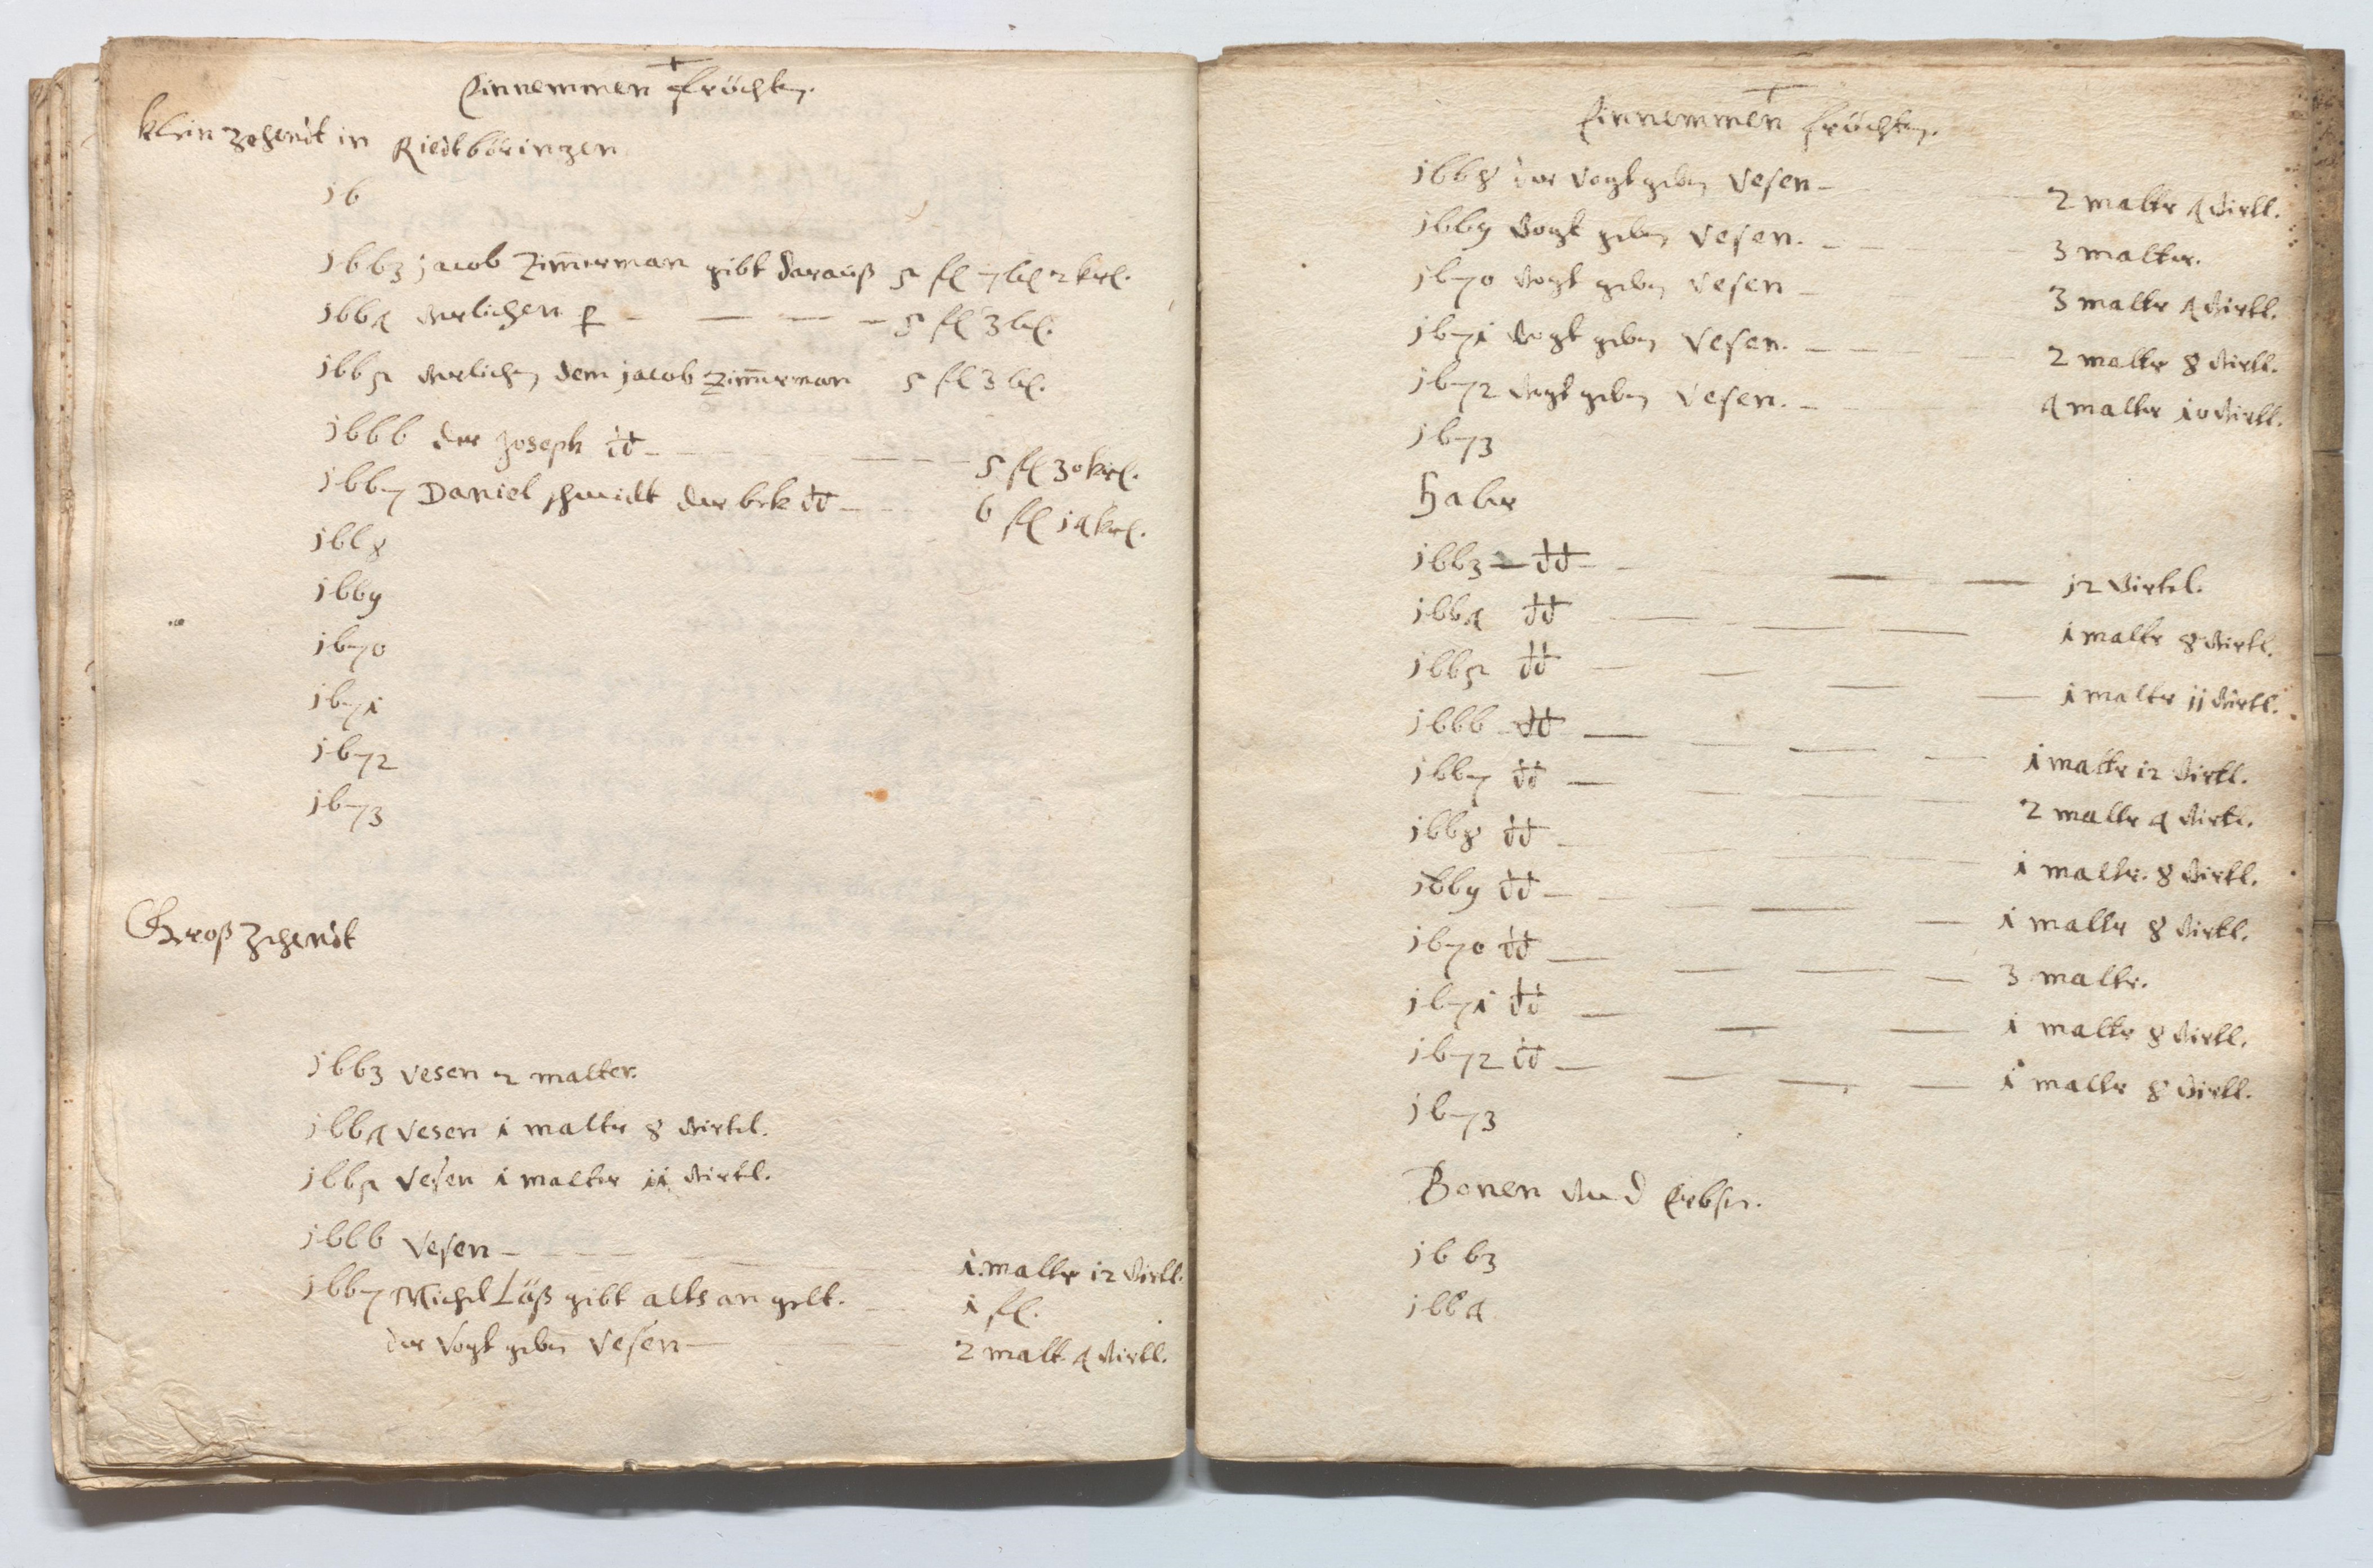 Einnemmen früchten.
klein zehendt in Riedtböringen
16
1663 jacob Zimerman gibt darauß 5 fl 7 bl 2 krl.
1664 verlichen p — — — — 5 fl 3 bl.
1665 verlichen dem jacob Zimerman 5 fl 3 bl.
1666 der joseph dt — — — 5 fl 30 krl.
1667 Daniel schmidt der bek dt — — 6 fl 14 krl.
1668
1669
1670
1671
1672
1673
Groß Zehendt
1663 vesen 2 malter.
1664 vesen 1 maltr 8 virtel.
1665 vesen 1 malter 11 virtl.
1666 vesen — — — — 1 maltr 12 virtl.
1667 Michel Läß gibt alts an gelt. — 1 fl.
der Vogt geben vesen — — 2 malt. 4 virtl.
Einnemmen früchten.
1668 der vogt geben vesen — — 2 maltr 4 virtl.
1669 vogt geben vesen. — — — 3 malter.
1670 vogt geben vesen — — 3 maltr 4 virtl.
1671 vogt geben vesen. — — — 2 maltr 8 virtl.
1672 vogt geben vesen. — — 4 maltr 10 virtl.
1673
Haber
1663 — dt — — — — 12 virtel.
1664 dt — — — — 1 maltr 8 virtl.
1665 dt — — — — 1 maltr 11 virtl.
1666 dt — — — — 1 maltr 12 virtl.
1667 dt — — — — 2 maltr 4 virtl.
1668 dt — — — — 1 maltr. 8 virtl.
1669 dt — — — — 1 maltr 8 virtl.
1670 dt — — — — 3 maltr.
1671 dt — — — 1 maltr 8 virtl.
1672 dt — — — — 1 maltr 8 virtl.
1673
Bonen und Erbsen.
1663
1664